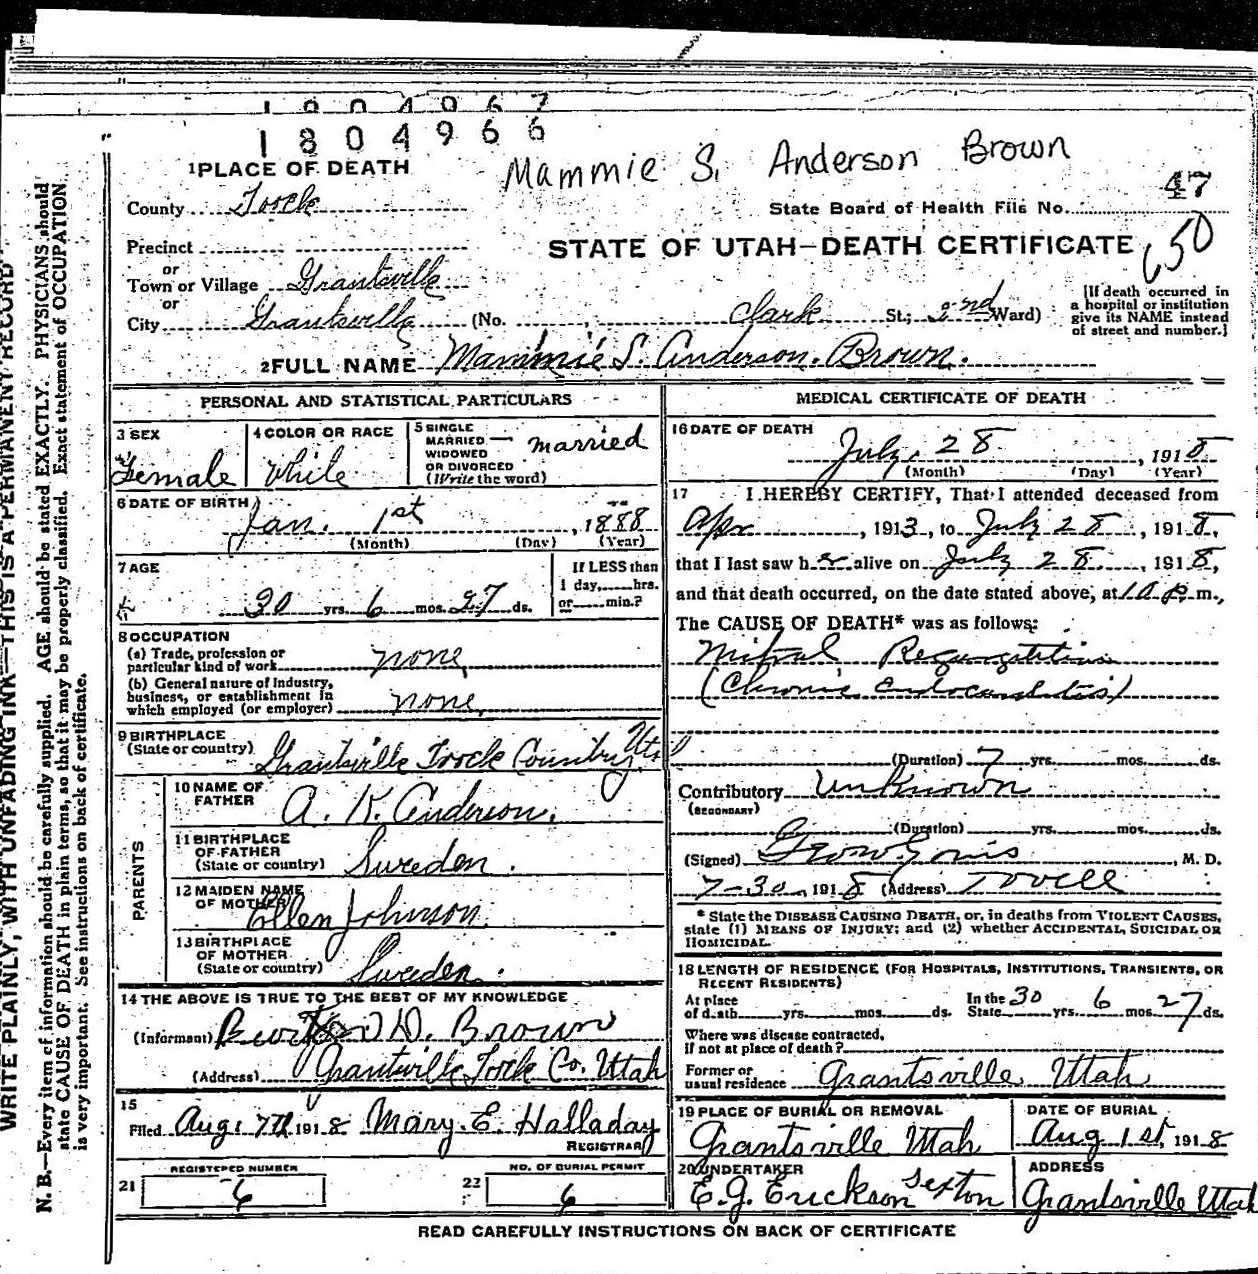 1804967
1804966
Mammie S. Anderson Brown
1 PLACE OF DEATH
County Tooele
State Board of Health File No. 47
Precinct
STATE OF UTAH—DEATH CERTIFICATE 650
or
Town or Village Grantsville
or
City Grantsville (No. , Clark St.; 2nd Ward)
[If death occurred in a hospital or institution give its NAME instead of street and number.]
2 FULL NAME Mammie S. Anderson. Brown.
PERSONAL AND STATISTICAL PARTICULARS
3 SEX
Female
4 COLOR OR RACE
White
5 SINGLE
MARRIED — married
WIDOWED
OR DIVORCED
(Write the word)
6 DATE OF BIRTH
Jan. 1st , 1888
(Month) (Day) (Year)
7 AGE
30 yrs. 6 mos. 27 ds.
If LESS than
1 day, hrs.
or min.?
8 OCCUPATION
(a) Trade, profession or
particular kind of work none
(b) General nature of Industry,
business, or establishment in
which employed (or employer) none
9 BIRTHPLACE
(State or country) Grantsville Tooele Country Utah
PARENTS
10 NAME OF
FATHER A. K. Anderson.
11 BIRTHPLACE
OF FATHER
(State or country) Sweden.
12 MAIDEN NAME
OF MOTHER Ellen Johnson
13 BIRTHPLACE
OF MOTHER
(State or country) Sweden.
14 THE ABOVE IS TRUE TO THE BEST OF MY KNOWLEDGE
(Informant) D. Brown
(Address) Grantsville Tooele Co. Utah
15
Filed Aug. 7th 1918 Mary. E. Halladay
REGISTRAR
REGISTERED NUMBER
21 6
NO. OF BURIAL PERMIT
22 6
MEDICAL CERTIFICATE OF DEATH
16 DATE OF DEATH
July, 28 , 1918
(Month) (Day) (Year)
17 I HEREBY CERTIFY, That I attended deceased from
Apr , 1913, to July 28 , 1918,
that I last saw her alive on July 28 , 1918,
and that death occurred, on the date stated above, at 10 p. m.,
The CAUSE OF DEATH* was as follows:
Mitral Regurgitation
(Chronic Endocarditis)
(Duration) 7 yrs. mos. ds.
Contributory Unknown
(SECONDARY)
(Duration) yrs. mos. ds.
(Signed) , M. D.
7-30, 1918 (Address) Tooele
* State the DISEASE CAUSING DEATH, or, in deaths from VIOLENT CAUSES,
state (1) MEANS OF INJURY; and (2) whether ACCIDENTAL, SUICIDAL OR
HOMICIDAL.
18 LENGTH OF RESIDENCE (FOR HOSPITALS, INSTITUTIONS, TRANSIENTS, OR
RECENT RESIDENTS)
At place
of death yrs. mos. ds.
In the
State 30 yrs. 6 mos. 27 ds.
Where was disease contracted,
If not at place of death?
Former or
usual residence Grantsville Utah
19 PLACE OF BURIAL OR REMOVAL
Grantsville Utah
DATE OF BURIAL
Aug 1st, 1918
20 UNDERTAKER
E. J. Erickson Sexton
ADDRESS
Grantsville Utah
READ CAREFULLY INSTRUCTIONS ON BACK OF CERTIFICATE
WRITE PLAINLY, WITH UNFADING INK—THIS IS A PERMANENT RECORD
N. B.—Every item of information should be carefully supplied. AGE should be stated EXACTLY. PHYSICIANS should
state CAUSE OF DEATH in plain terms, so that it may be properly classified. Exact statement of OCCUPATION
is very important. See instructions on back of certificate.